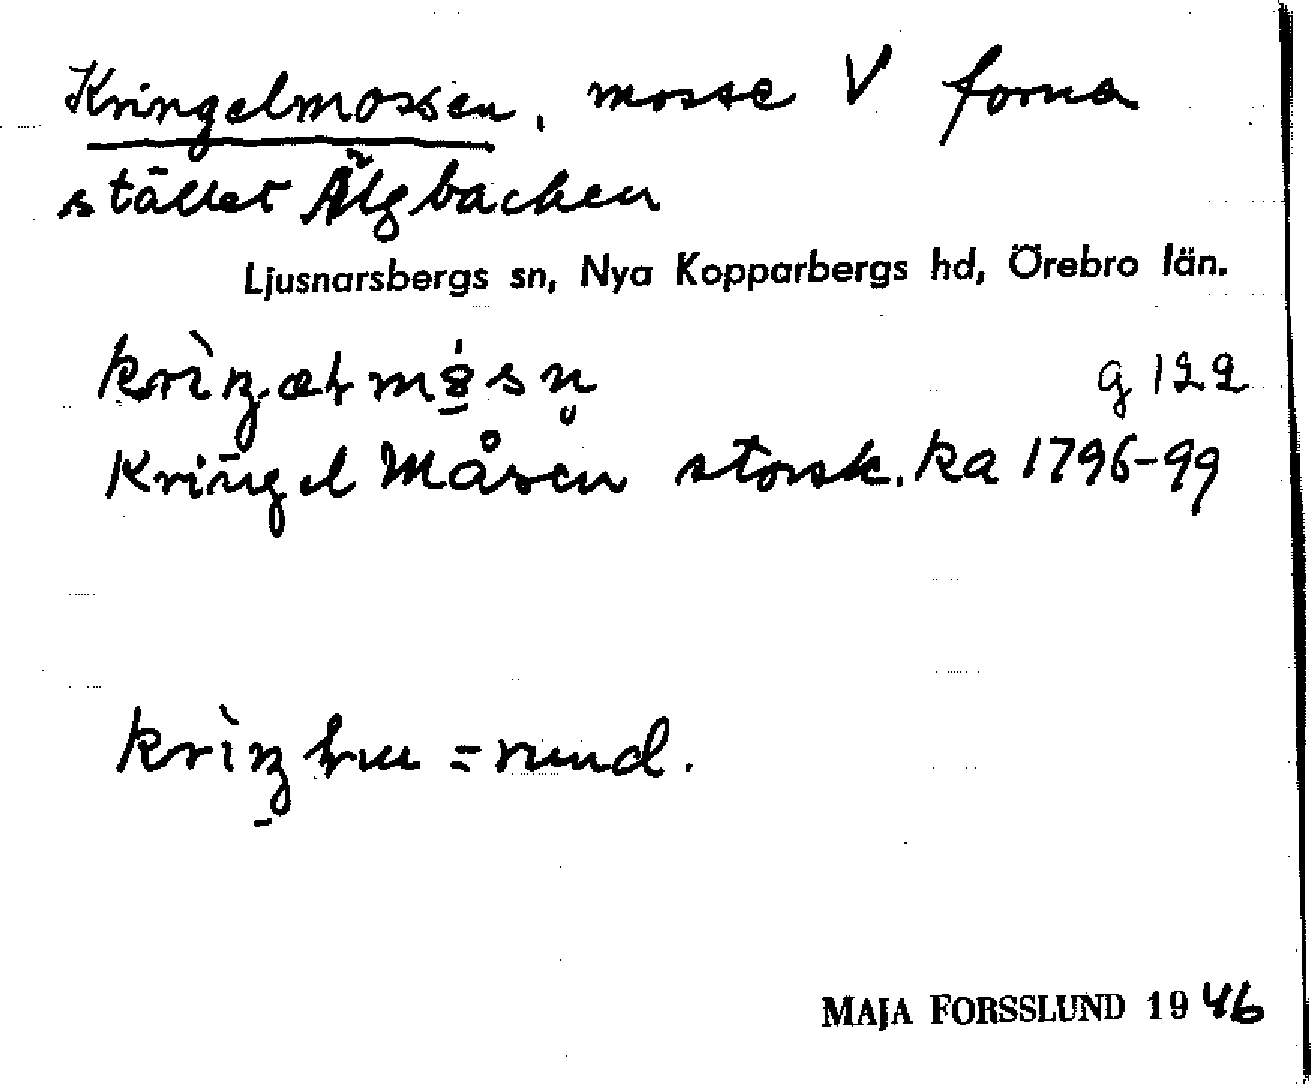 Kringelmossen, mosse V forna
stället Älgbacken
Ljusnarsbergs sn, Nya Kopparbergs hd, Örebro län.
g 122
Kringel Måsen storsk. ka 1796-99
= rund.
MAJA FORSSLUND 1946